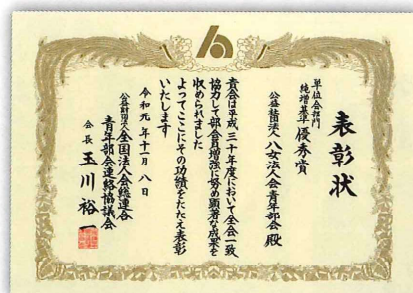 表彰状
単位会部門
純増基準 優秀賞
公益社団法人 八女法人会青年部会 殿
貴会は平成三十年度において全会一致
協力して部会員増強に努め顕著な成果を
収められました
よってここにその功績をたたえ表彰
いたします
令和元年十一月八日
公益財団法人 全国法人会総連合
青年部会連絡協議会
会長 玉川裕一